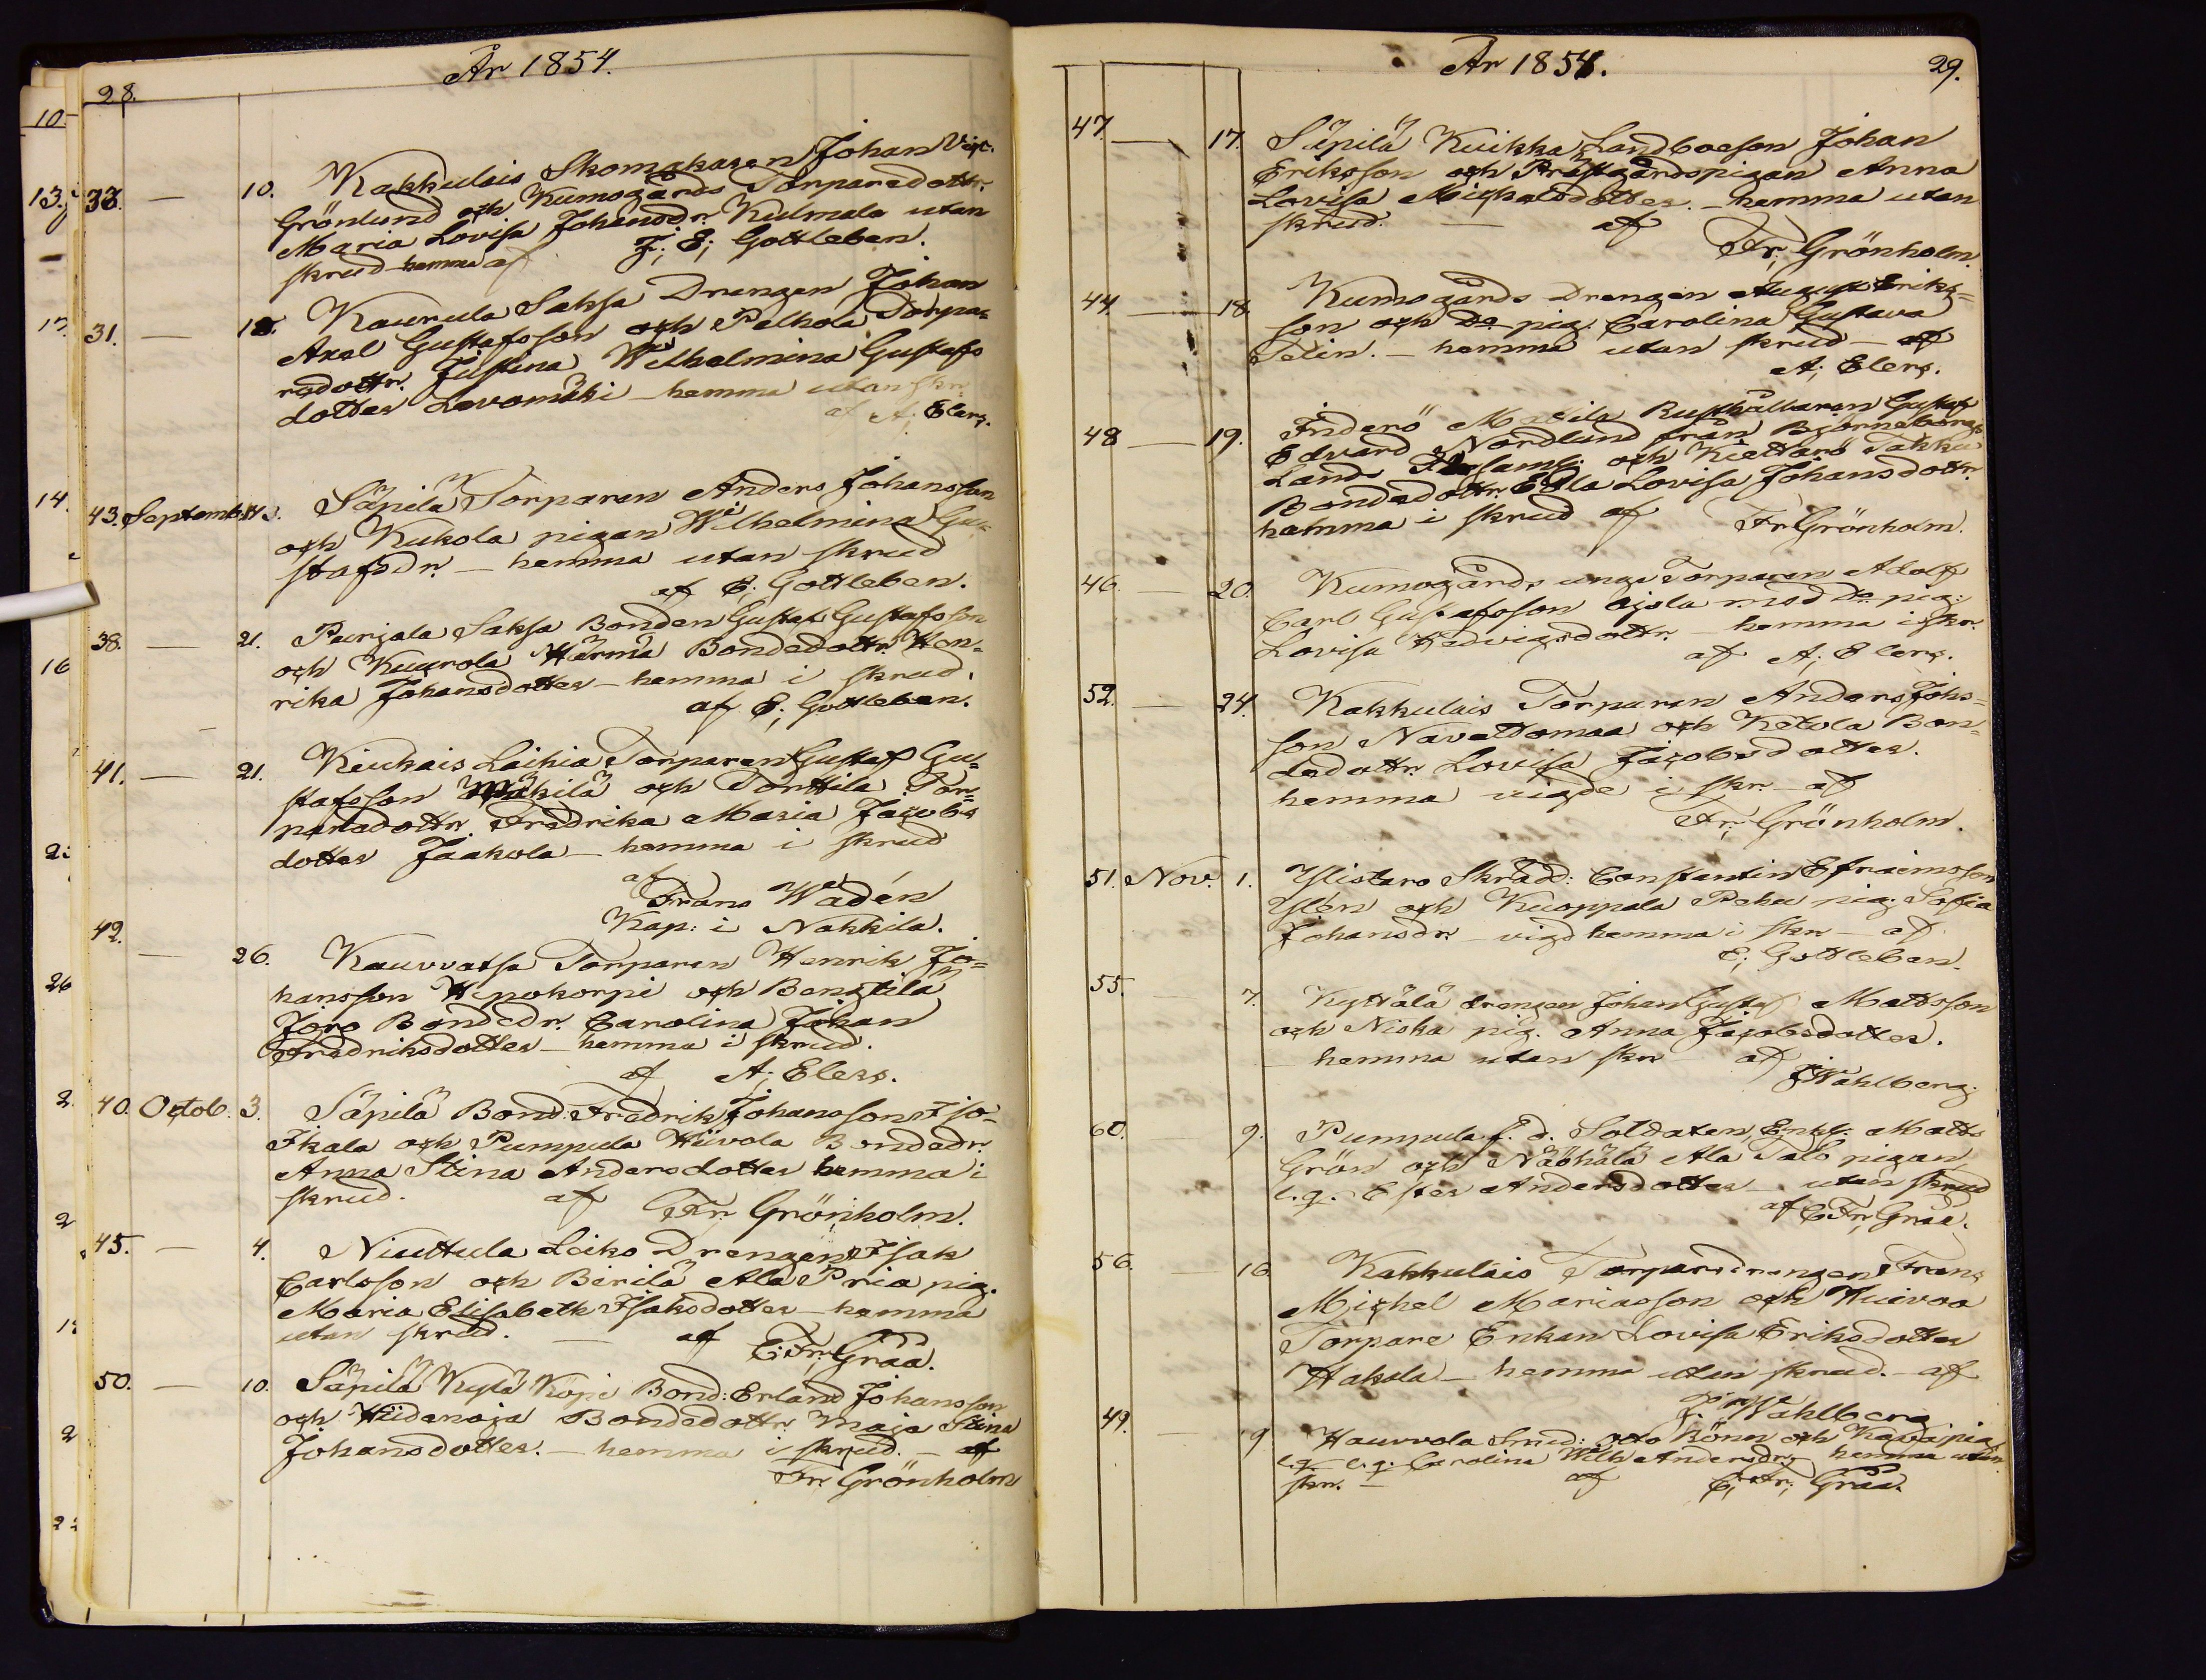 28.
År 1854.
33. — 10. Kakkulais Skomakaren Johan Vigt.
Grönlund och Kumogårds Torparedottr.
Maria Lovisa Johansdr. Kulmala utan
skrud hemma af F; E; Gottleben.
31. — 18. Kaurula Saksa Drengen Johan
Axel Gustafsson och Palhola Torpa=
redottr. Justina Wilhelmina Gustafs
dotter Levomäki – hemma utan skr.
af A; Elers.
43. Septemb. 14. Säpilä Torparen Anders Johansson
och Kukola pigan Wilhelmina Gu=
stafsdr. – hemma utan skrud
af E; Gottleben.
38. — 21. Purjala Saksa Bonden Gustaf Gustafsson
och Kuurola Härmä Bondedottr. Hen=
rika Johansdotter – hemma i skrud.
af E; Gottleben.
41. — 21. Kiukais Laihia Torparen Gustaf Gu=
stafsson Mäkilä och Torttila Tor=
paredottr. Fredrika Maria Jacobs
dotter Jaakola – hemma i skrud
af
Frans Wadén
Kap: i Nakkila.
42. — 26. Kauvatsa Torparen Henrik Jo=
hansson Hepokorpi och Bengtilä
Jöro Bondedr. Carolina Johan
Fredriksdotter – hemma i skrud.
af A; Elers.
40. Octob. 3. Säpilä Bond: Fredrik Johansson Iso=
Ikala och Pumpula Hiivola Bondedr.
Anna Stina Andersdotter hemma i
skrud. af Fr. Grönholm.
45. — 4. Niuttula Leiko Drengen Isak
Carlsson och Birilä Ala Pria pig.
Maria Elisabeth Isaksdotter – hemma
utan skrud. — af C: Fr; Gråå.
50. — 10. Säpilä Kylä Köpi Bond: Erland Johansson
och Hiidenoja Bondedottr. Maja Stina
Johansdotter. – hemma i skrud. – af
Fr. Grönholm
År 1854.
29.
47. — 17. Säpilä Kuikka Landboeson Johan
Eriksson och Prästgårdspigan Anna
Lovisa Michalsdotter. – hemma utan
skrud. — af
Fr; Grönholm.
44. — 18. Kumogårds Drengen August Eriks=
son och Do pig. Carolina Gustava
Telin. – hemma utan skrud – af
A; Elers.
48 — 19. Inderö Mattila Rusthållaren Gustaf
Edvard Nordlund från Björneborgs
Lands Församl: och Kiettarö Takku
Bondedottr. Edla Lovisa Johansdottr.
hemma i skrud af Fr Grönholm.
46. — 20. Kumogårds unge Torparen Adolf
Carl Gustafsson Ojala med Do pig:
Lovisa Hedvigsdottr. – hemma i skr.
af A; Elers.
52. — 24. Kakkulais Torparen Anders Johs=
son Navettomaa och Ketola Bon=
dedottr. Lovisa Jacobsdotter.
hemma vigde i skr. – af
Fr; Grönholm.
51. Nov. 1. Ylistaro Skrädd: Constantin Efraimsson
Ylén och Kuoppala Pehu pig. Sofia
Johansdr. – vigd hemma i skr – af
E; Gottleben.
55. 7. Kyttälä drengen Johan Gustaf Mattsson
och Niska pig. Anna Jacobsdotter.
hemma utan skr – af
J Wahlberg.
60. 9. Pumpula f. d. Soldaten, Enkl: Matts
Grön och Näöhälä Ala Talo pigan
l. q. Ester Andersdotter – utan skrud
af C Fr; Gråå.
56. — 16. Kakkulais Torparedrengen Frans
Michel Mariasson och Huivoo
Torpare Enkan Lovisa Eriksdotter
Hakala – hemma utan skrud. – af
J. Wahlberg
49. — 9 Hauvola Smed: Otto Böner och Kava pig.
l. q. l. q. Carolina Wilh. Andersdr; hemma utan
skr. – af C; Fr; Gråå.